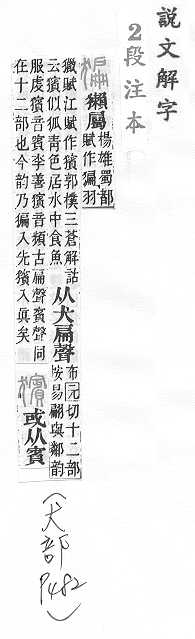 説文解字
2段注本
猵 獺屬
楊雄蜀都
賦作猵羽
獵賦江賦作獱郭樸三蒼解詁
云獱似狐青色居水中食魚
从犬扁聲
布元切十二部
按易翩與鄰韵
服虔獱音賓李善獱音頻古扁聲賓聲同
在十二部也今韵乃猵入先獱入眞矣
獱 或从賓
(犬部 P482)